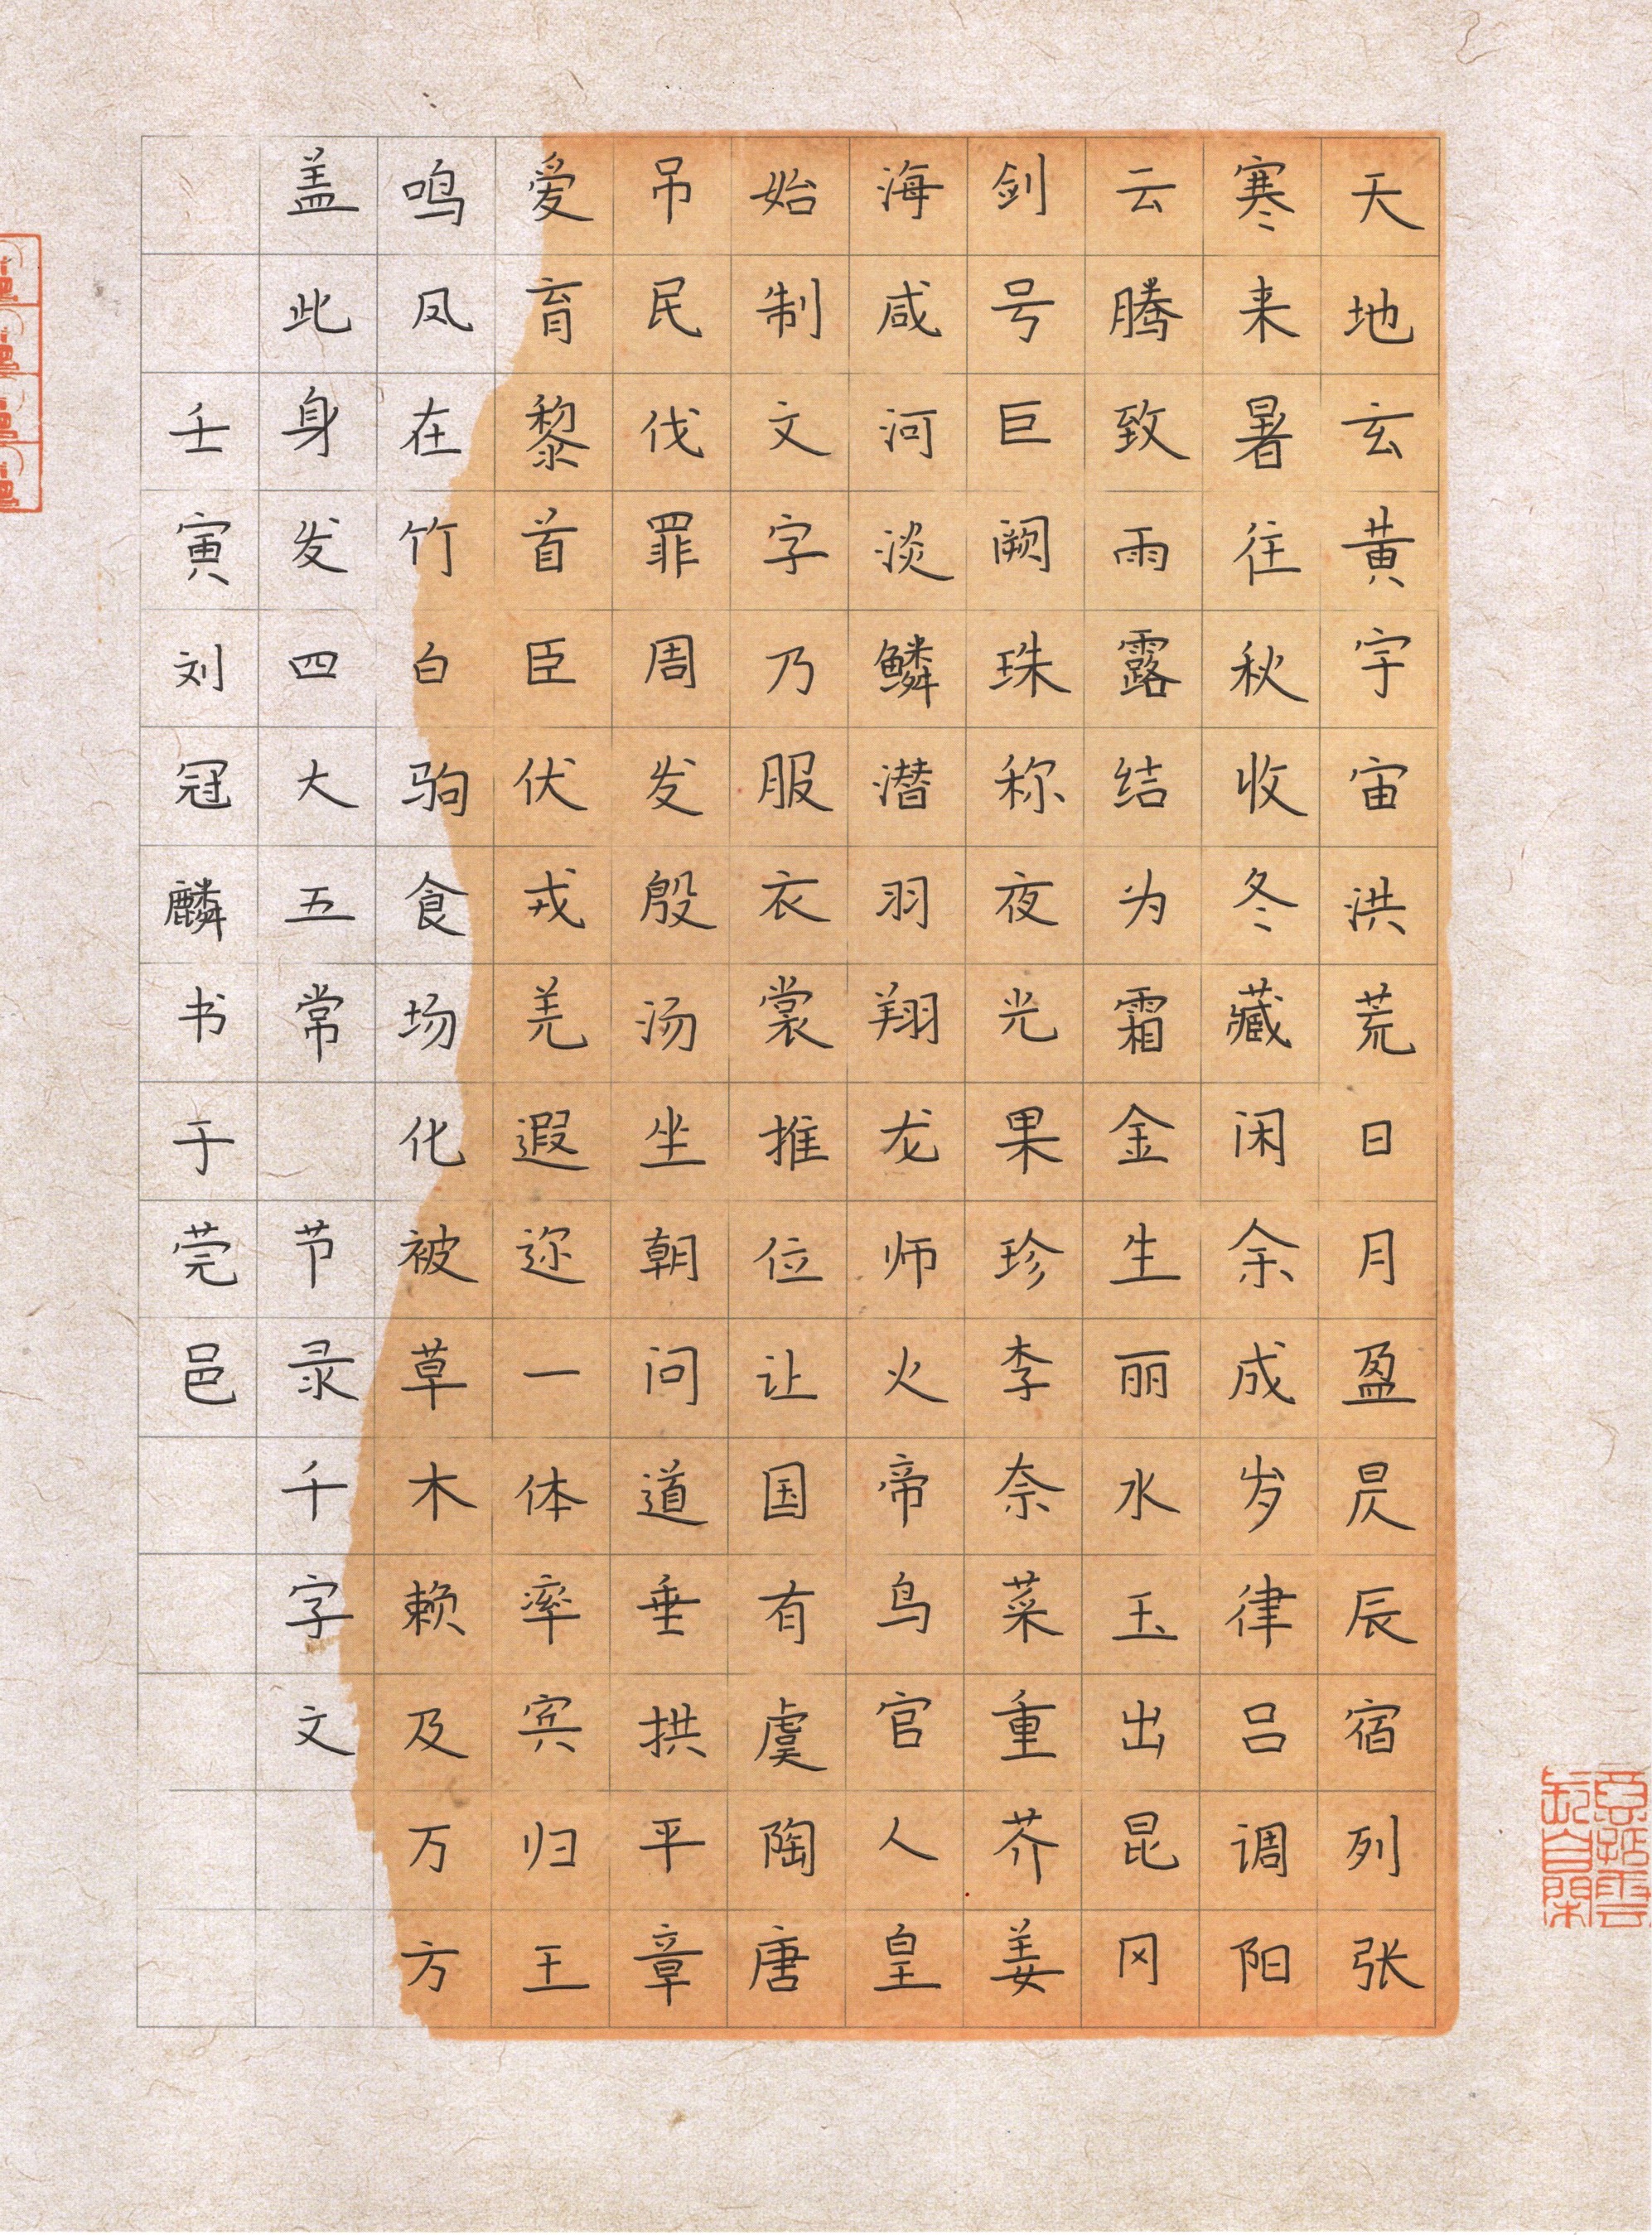 天地玄黄宇宙洪荒日月盈昃辰宿列张
寒来暑往秋收冬藏闲余成岁律吕调阳
云腾致雨露结为霜金生丽水玉出昆冈
剑号巨阙珠称夜光果珍李奈菜重芥姜
海咸河淡鳞潜羽翔龙师火帝鸟官人皇
始制文字乃服衣裳推位让国有虞陶唐
吊民伐罪周发殷汤坐朝问道垂拱平章
爱育黎首臣伏戎羌遐迩一体率宾归王
鸣凤在竹白驹食场化被草木赖及万方
盖此身发四大五常 节录千字文
壬寅刘冠麟书于莞邑